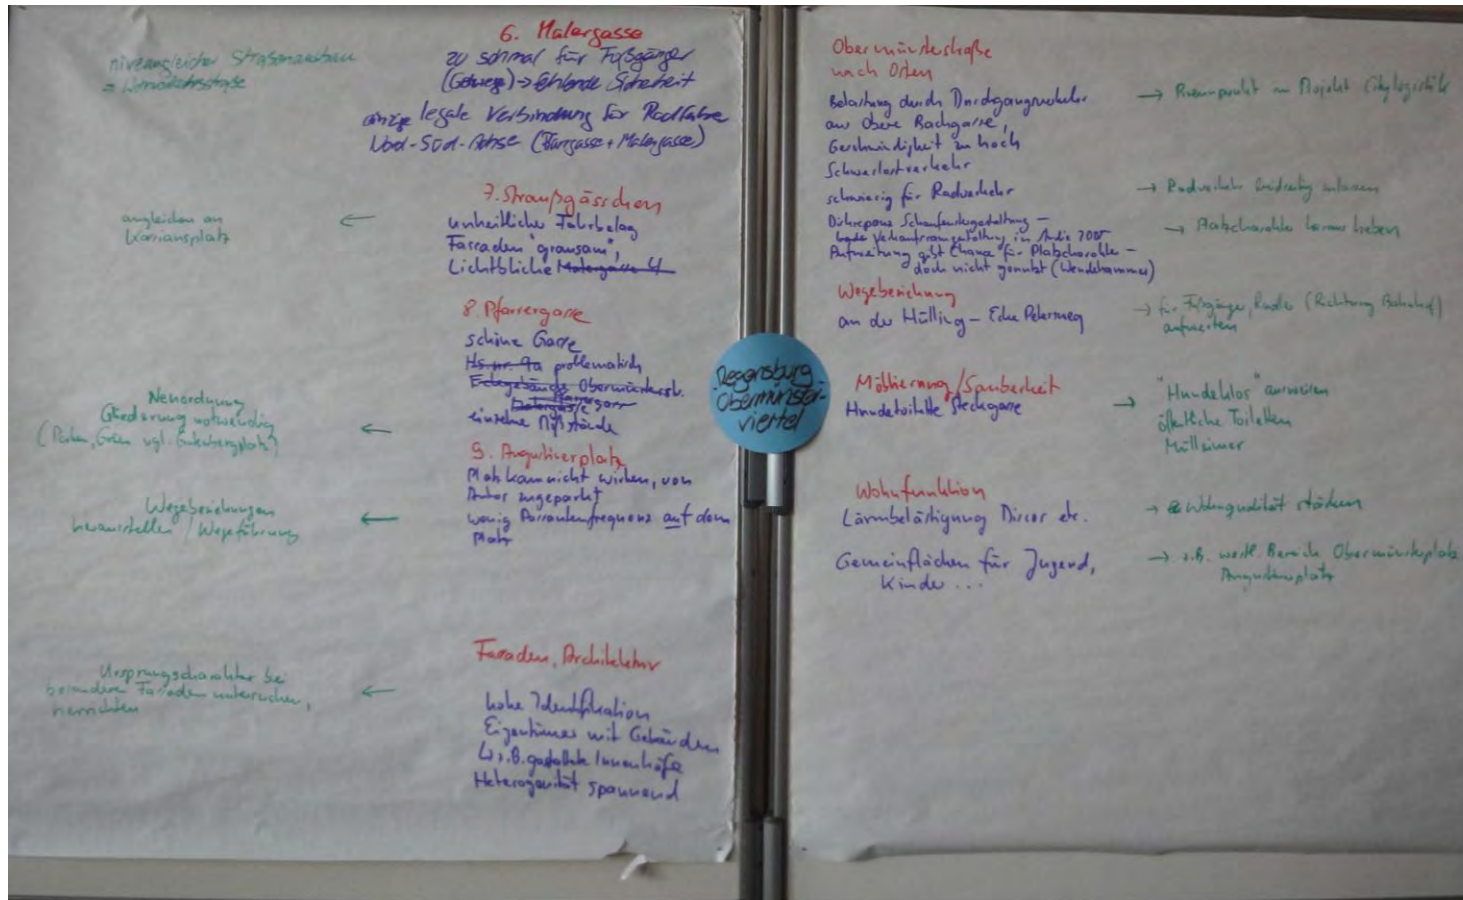 6. Malergasse
zu schmal für Fußgänger
(Gehwege) → fehlende Sicherheit
einzige legale Verbindung für Radfahrer
Nord-Süd-Achse (Pfarrgasse + Malergasse)
niveaugleicher Strassenausbau
7. Straußgässchen
unheitlicher Fahrbelag
Fassaden "grausam",
Lichtbliche Malergasse 4
angleichen an
←
8. Pfarrergasse
schöne Gasse
Hs. nr. 9a problematisch
Eckgebäude Obermünsterstr.
einzelne Mißstände
Neuordnung
Gliederung notwendig
←
9. Augustinerplatz
Platz kann nicht wirken, von
Autos zugeparkt
wenig Passantenfrequenz auf dem
Platz
Wegebeziehungen
herausstellen / Wegeführung
←
Fassaden, Architektur
hohe Identifikation
Eigentümer mit Gebäuden
z.B. gestaltete Innenhöfe
Heterogenität spannend
Ursprungscharakter bei
besonderen Fassaden untersuchen,
herrichten
←
Regensburg
-Obermünster-
viertel
Obermünsterstraße
nach Osten
Belastung durch Durchgangsverkehr
aus Obere Bachgasse,
Geschwindigkeit zu hoch
Schwerlastverkehr
schwierig für Radverkehr
Aufweitung gibt Chance für Platzcharakter –
doch nicht genutzt (Wendehammer)
→ Radverkehr beidseitig zulassen
→ Platzcharakter heraus heben
Wegebeziehung
an der Hülling – Ecke Petersweg
→ für Fußgänger, Radler (Richtung Bahnhof)
aufwerten
Möblierung/Sauberkeit
Hundetoilette Steckgasse
→ "Hundeklos" ausweisen
öffentliche Toiletten
Mülleimer
Wohnfunktion
Lärmbelästigung Discos etc.
→ Wohnqualität stärken
Gemeinflächen für Jugend,
Kinder ...
→ z.B. westl. Bereich Obermünsterplatz
Augustinerplatz